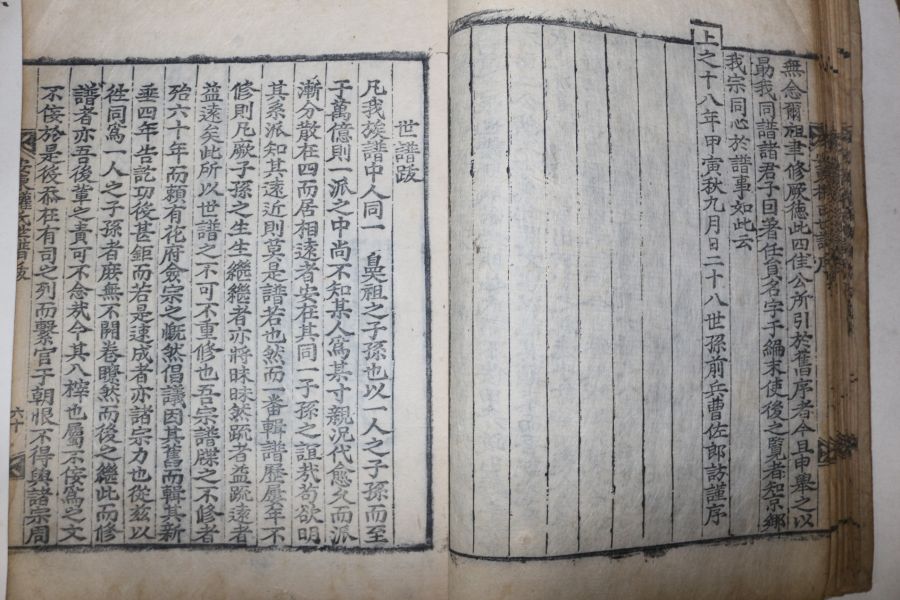 無念爾祖聿修厥德此四佳公所引於舊序者今且申舉之以
勗我同譜諸君子因筆任員名字于編末使後之覽者知京鄉
我宗同心於譜事如此云
上之十八年甲寅秋九月日二十八世孫前兵曹佐郎訪謹序
世譜跋
凡我族譜中人同一 鼻祖之子孫也以一人之子孫而至
子萬億則一派之中尚不知某人爲某寸親況代愈久而派
漸分散在四而居相遠者安在其同一子孫之誼哉苟欲明
其系派知其遠近則莫是譜若也然而一番輯譜歷屢年不
修則凡厥子孫之生生繼繼者亦將昧昧然疏者益疏遠者
益遠矣此所以世譜之不可不重修也吾宗譜牒之不修者
殆六十年而賴有花府僉宗之慨然倡議因其舊而輯其新
垂四年告訖功後甚鉅而若是速成者亦諸宗力也從玆以
徃同爲一人之子孫者庶無不開卷瞭然而後之繼此而修
譜者亦吾後輩之責可不念哉今其入梓也屬不佞爲之文
不佞於是役忝在有司之列而繫官于朝恨不得與諸宗周
六十